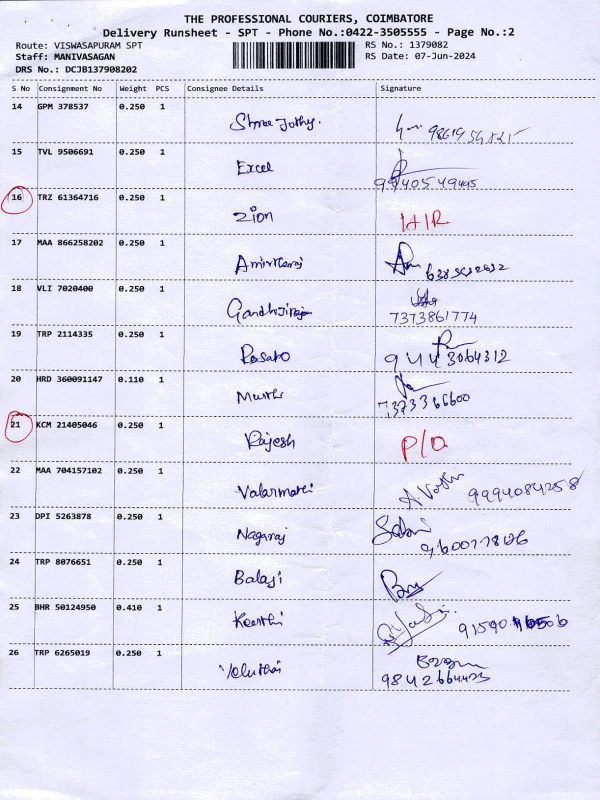 THE PROFESSIONAL COURIERS, COIMBATORE
Delivery Runsheet - SPT - Phone No.:0422-3505555 - Page No.:2
Route: VISWASAPURAM SPT RS No.: 1379082
Staff: MANIVASAGAN RS Date: 07-Jun-2024
DRS No.: DCJB137908202
S No Consignment No Weight PCS Consignee Details Signature
14 GPM 378537 0.250 1
Shree Jothy.
15 TVL 9506691 0.250 1
Excel 9940549445
16 TRZ 61364716 0.250 1
Zion
17 MAA 866258202 0.250 1
Amirtharaj
18 VLI 7020400 0.250 1
Gandhijirajan 7373861774
19 TRP 2114335 0.250 1
9443064312
20 HRD 360091147 0.110 1
Murthi 7373366600
21 KCM 21405046 0.250 1
Rajesh
22 MAA 704157102 0.250 1
Valarmathi 9994084258
23 DPI 5263878 0.250 1
Nagaraj
24 TRP 8076651 0.250 1
Balaji
25 BHR 50124950 0.410 1
Keerthi
26 TRP 6265019 0.250 1
Veluthai 9842664423